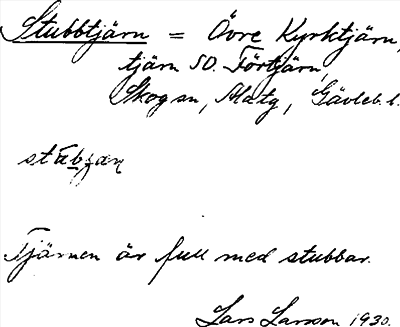 Stubbtjärn = Övre Kyrktjärn,
tjärn SO. Förtjärn,
Skog sn, Matg, Gävleb. l.
Tjärnen är full med stubbar.
Lars Larsson 1930.